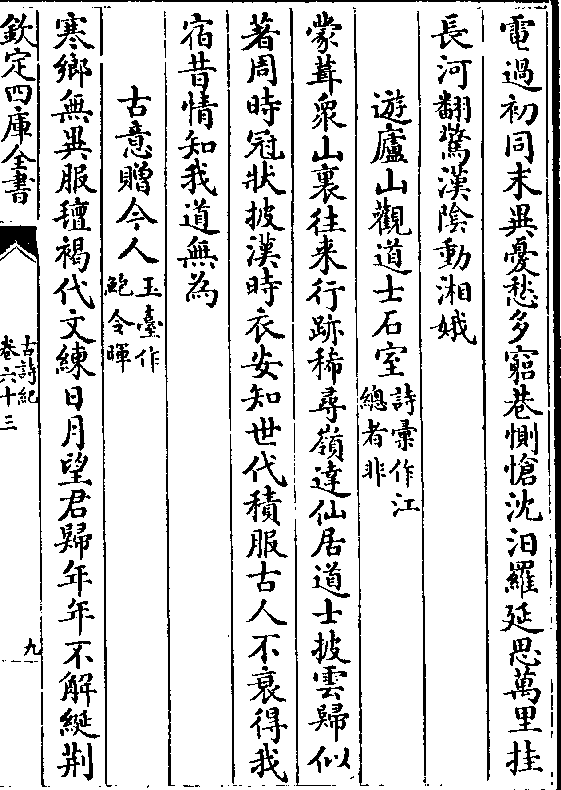 電過初同末異憂愁多窮巷惻愴沈汨羅延思萬里挂
長河翻驚漢陰動湘娥
遊廬山觀道士石室詩彙作江總者非
蒙茸衆山裏往来行跡稀尋嶺達仙居道士披雲歸似
著周時冠狀披漢時衣安知世代積服古人不衰得我
宿昔情知我道無為
古意贈今人玉臺作鮑令暉
寒鄉無異服氊褐代文練日月望君歸年年不解綖荆
欽定四庫全書
古詩紀
卷六十三
九